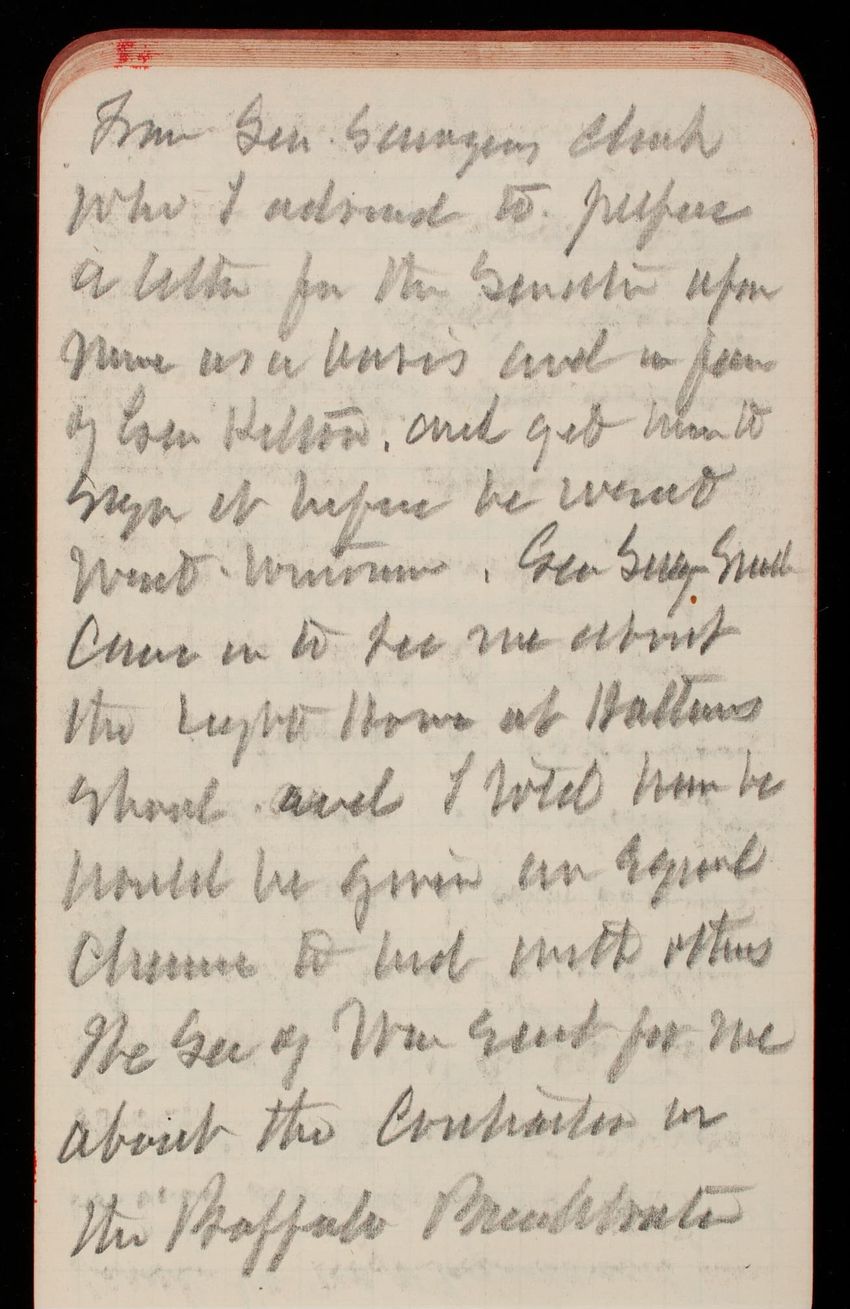 From Sen Sawyers Clerk
Who I advised to prepare
a letter for the Senator upon
mine as a basis and in favor
of Gen Kelton, and get him to
sign it before he went
West tomorrow. Gen Geo Smith
Came in to see me about
the Light House at
Shoal and I told him he
would be given an Equal
Chance to bid with others
The Sec of War sent for me
about the Contractor on
the Buffalo Breakwater